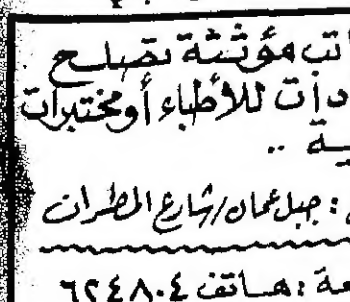 اتب مؤثثة تصلح
دات للأطباء أو مختبرات
ية ..
: جبل عمان / شارع المطران
عة : هاتف ٦٢٤٨٠٤